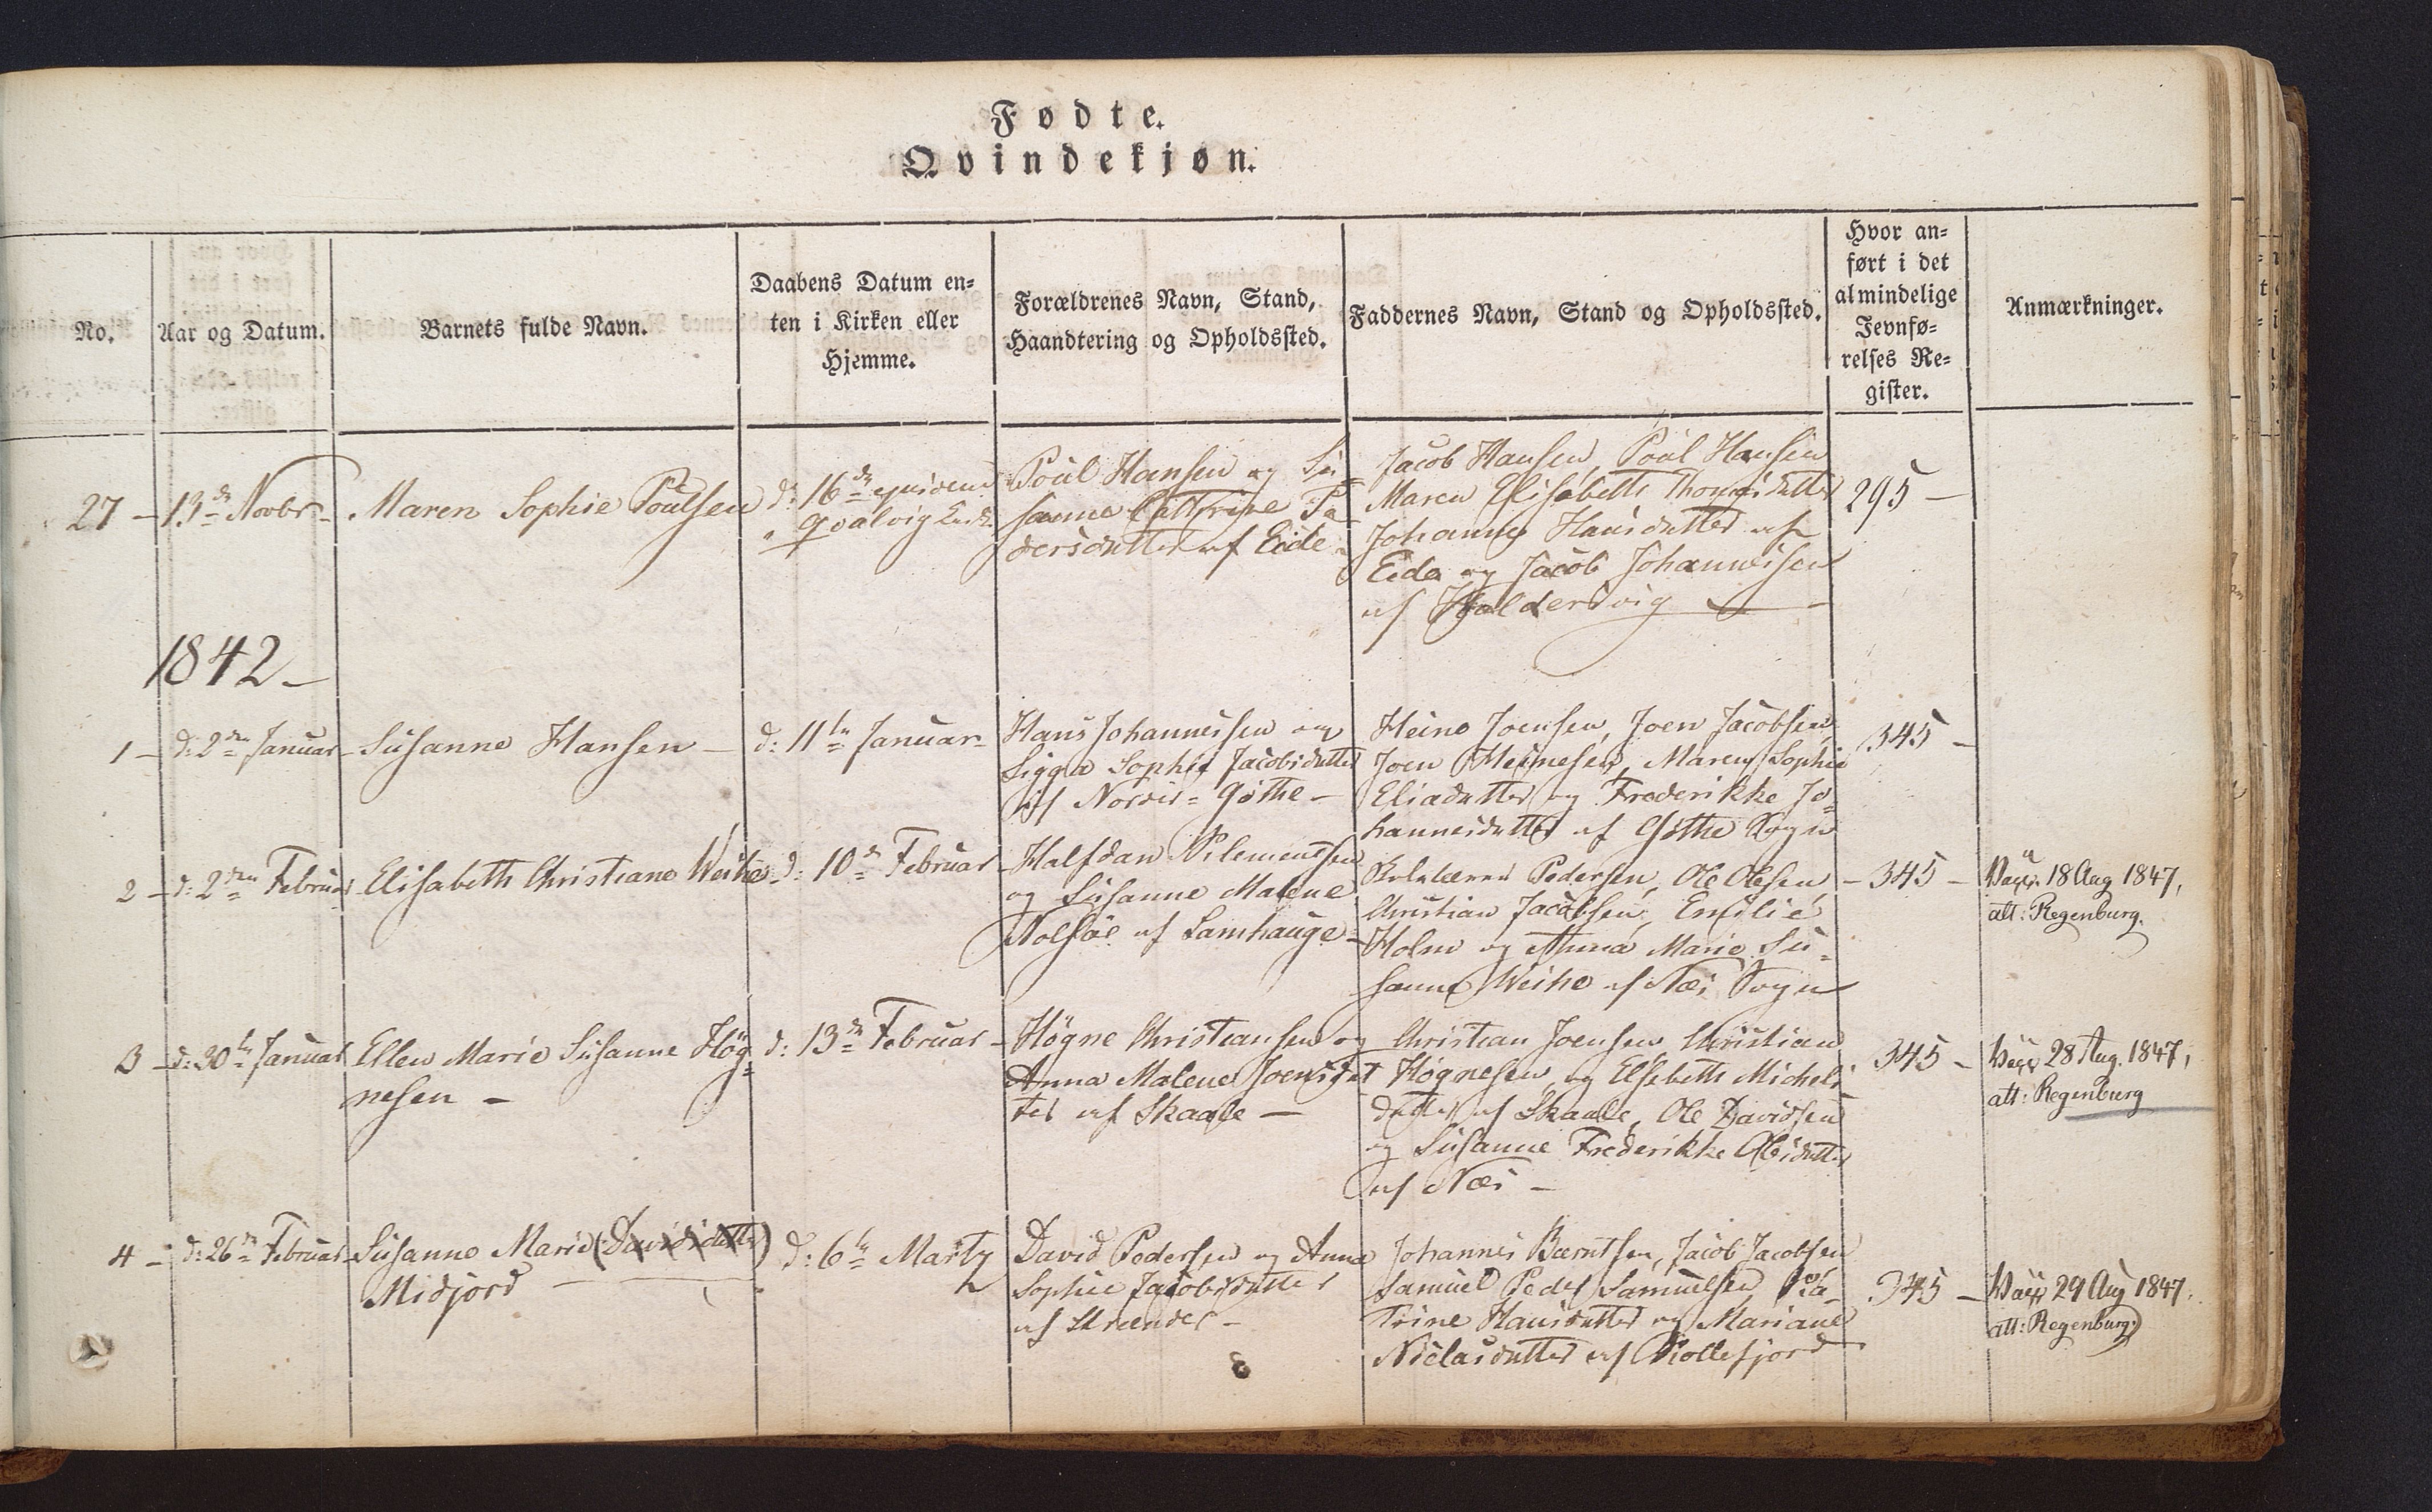 Fødte.
Qvindekjøn.
No.
Aar og Datum.
Barnets fulde Navn.
Daabens Datum en-
ten i Kirken eller
Hjemme.
Forældrenes Navn, Stand,
Haandtering og Opholdssted.
Faddernes Navn, Stand og Opholdssted.
Hvor an-
ført i det
almindelige
Jevnfø-
relses Re-
gister.
Anmærkninger.
27 - 13de Novbr -
Maren Sophie Poulsen
d: 16de ejusdem
Qvalvig
Poul Hansen og Su-
sanne Cathrine Pe-
dersdatter af Eide
Jacob Hansen, Poul Hansen
Maren Elisabeth Thomasdatter
Johanne Hansdatter af
Eide og Jacob Johannesen
af Haldersvig
295 -
1842 -
1 - d: 2den Januar -
Susanne Hansen -
d: 11te Januar -
Hans Johannessen og
Sigga Sophie Jacobsdatter
af Nordre-Gøthe -
Heine Joensen, Joen Jacobsen,
Joen Heinesen, Maren Sophie
Eliasdatter og Frederikke Jo-
hannesdatter af Gøthe Sogn
345 -
2 - d: 2den Februar
Elisabeth Christiane Weihe
d: 10de Februar
Halfdan Klemensen
og Susanne Malene
Nolsøe af Lamhauge -
Pedersen, Ole Olesen,
Christian Jacobsen, Emilie
Holm og Anna Marie Su-
sanne Weihe af Næs Sogn
- 345 -
Vacc. 18 Aug 1847,
att: Regenburg.
3 - d: 30te Januar
Ellen Marie Susanne Høg-
nesen -
d: 13de Februar -
Høgne Christiansen og
Anna Malene Joensdat-
ter af Skaale -
Christian Joensen Christian
Høgnesen, og Elsebeth Michels
datter af Skaale, Ole Davidsen
og Susanne Frederikke Olesdatter
af Næs -
345 -
Vacc 28 Aug. 1847,
att: Regenburg
4 - d: 26de Februar -
Susanne Marie (Davidsdatter)
Midjord -
d: 6te Marty
David Pedersen og Anna
Sophie Jacobsdatter
af Strænder -
Johannes Berntsen, Jacob Jacobsen
Samuel Peder Samuelsen, Ka-
trine Hansdatter og Mariane
Niclasdatter af Kollefjord
345 -
Vacc 29 Aug 1847.
att: Regenburg.